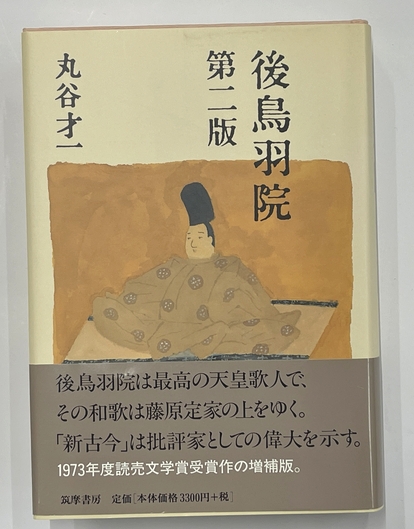 後鳥羽院
第二版
丸谷才一
後鳥羽院は最高の天皇歌人で、
その和歌は藤原定家の上をゆく。
「新古今」は批評家としての偉大を示す。
1973年度読売文学賞受賞作の増補版。
筑摩書房 定価[本体価格3300円+税]